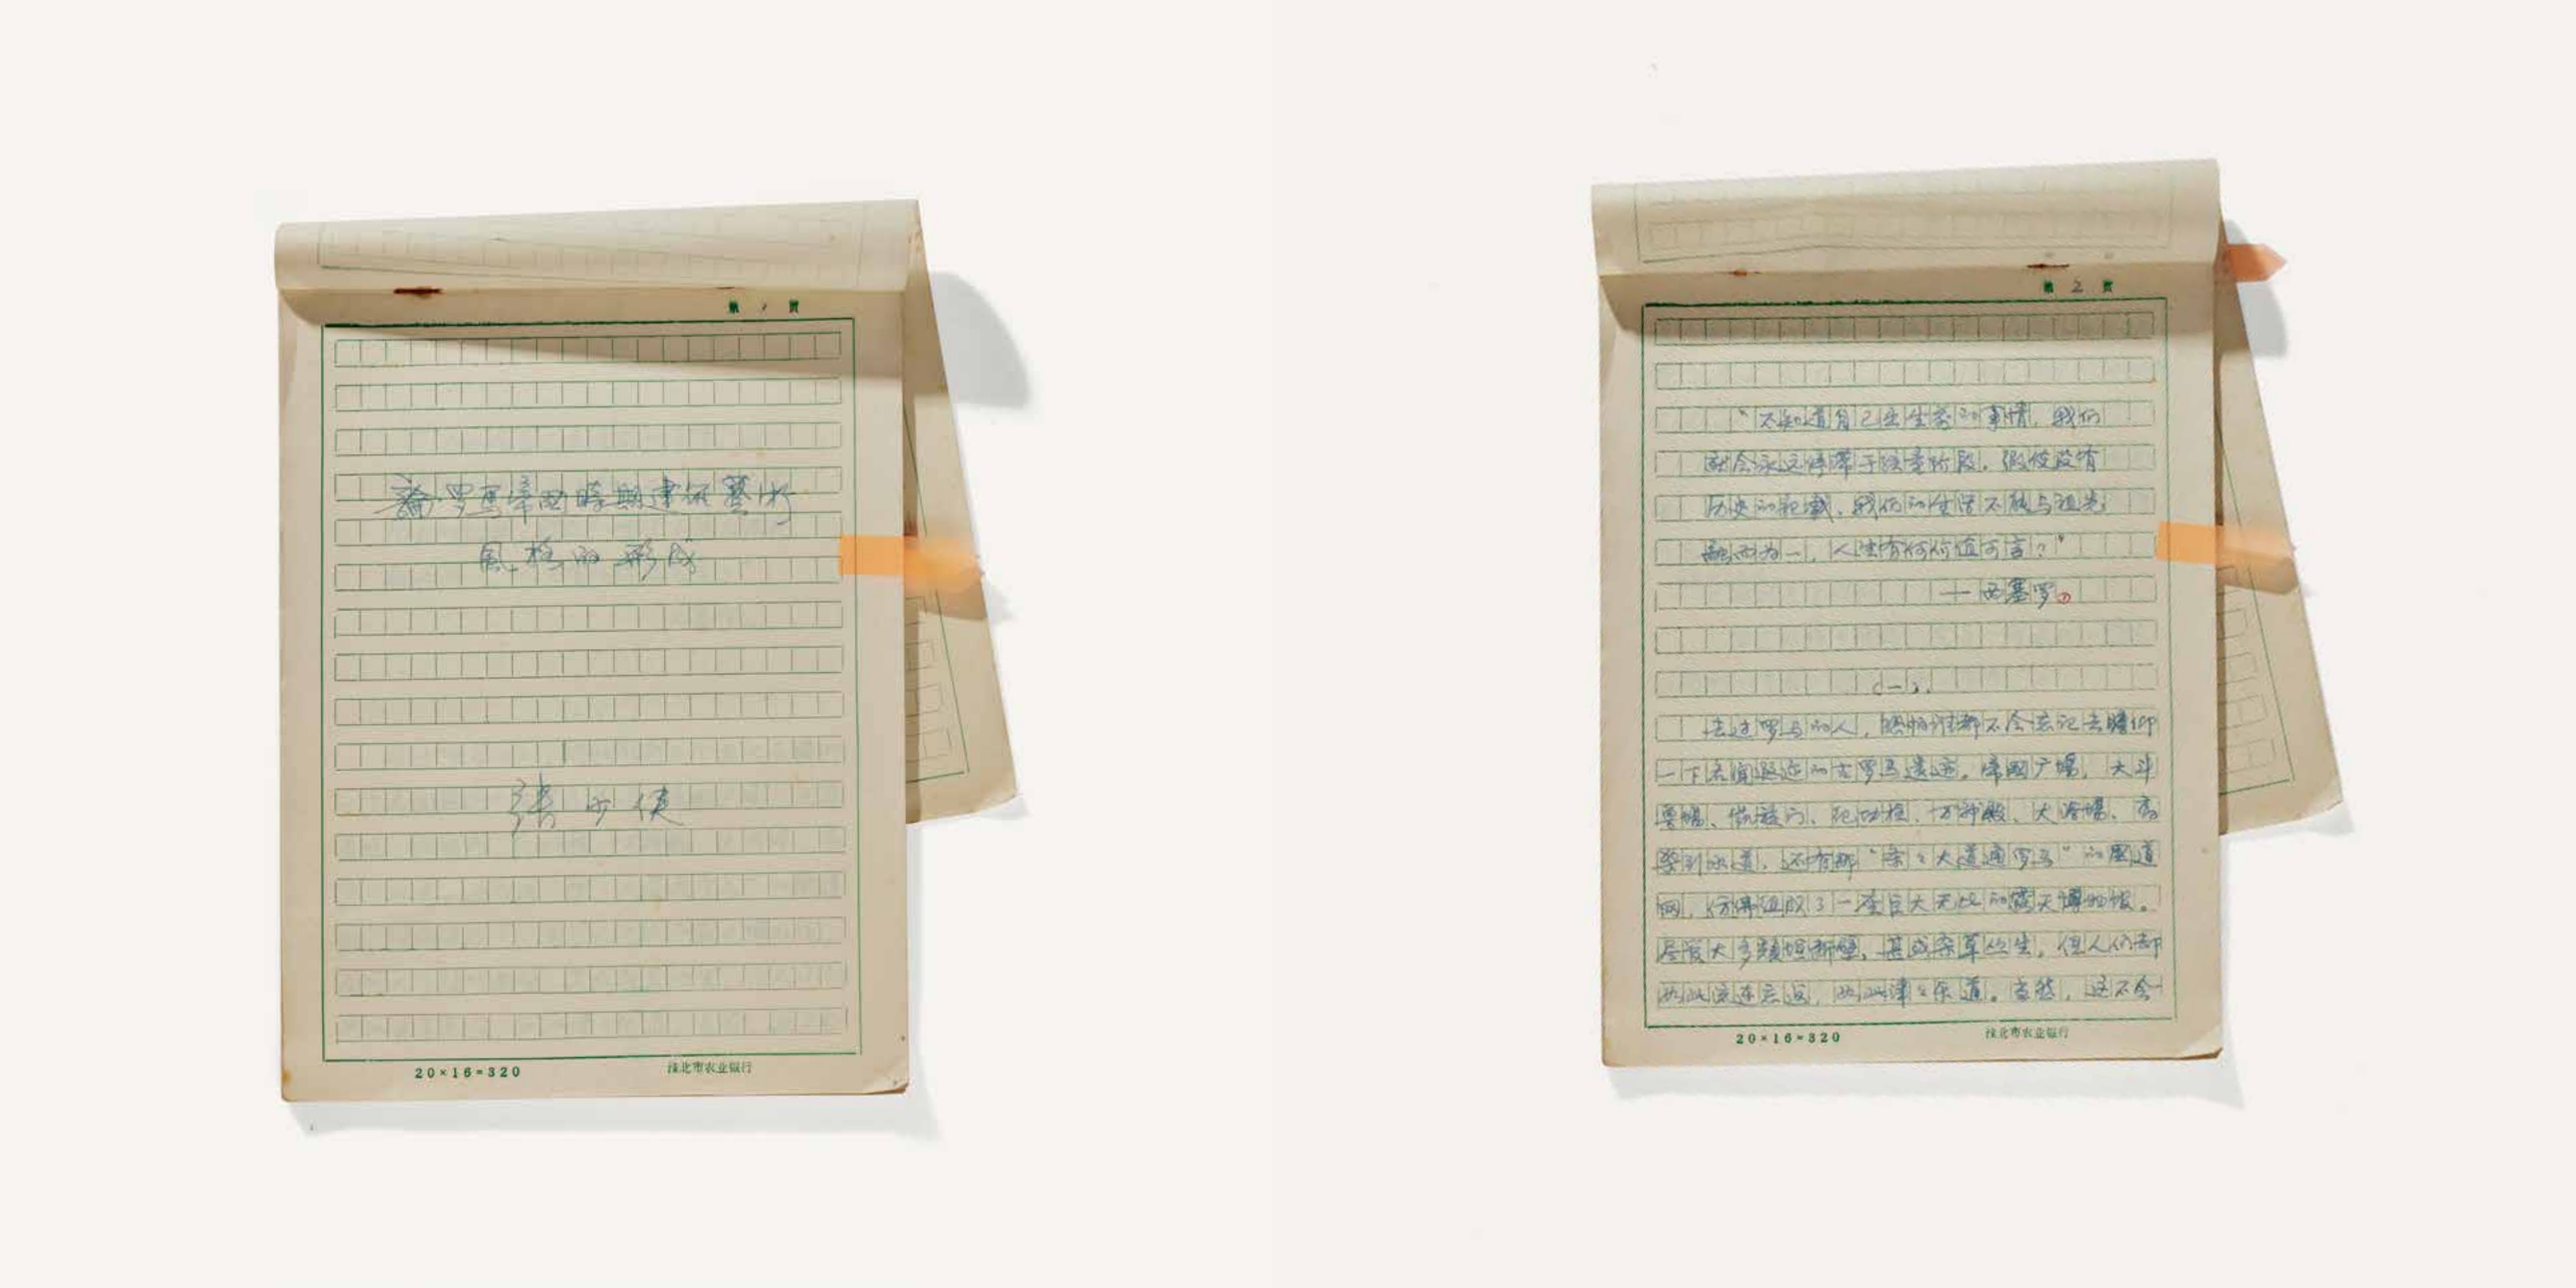 第 1 页
論罗馬帝国時期建筑藝術
風格的形成
張少俠
20×16=320
淮北市农业银行
第 2 页
“不知道自己出生前的事情，我们
就会永远停滞于孩童阶段。假使没有
历史的记载，我们的生活不能与祖先
融而为一，人生有何价值可言？”
——西塞罗①
（一）
去过罗马的人，恐怕谁都不会忘记去瞻仰
一下名闻遐迩的古罗马遗迹。帝国广場，大斗
兽場、凯旋门、纪功柱、万神殿、大浴場、高
架引水道，还有那“条々大道通罗马”的国道
网，仿佛组成了一座巨大无比的露天博物馆。
尽管大多颓垣断壁，甚或杂草丛生，但人们都
为此流连忘返，为此津々乐道。当然，这不会
20×16=320
淮北市农业银行